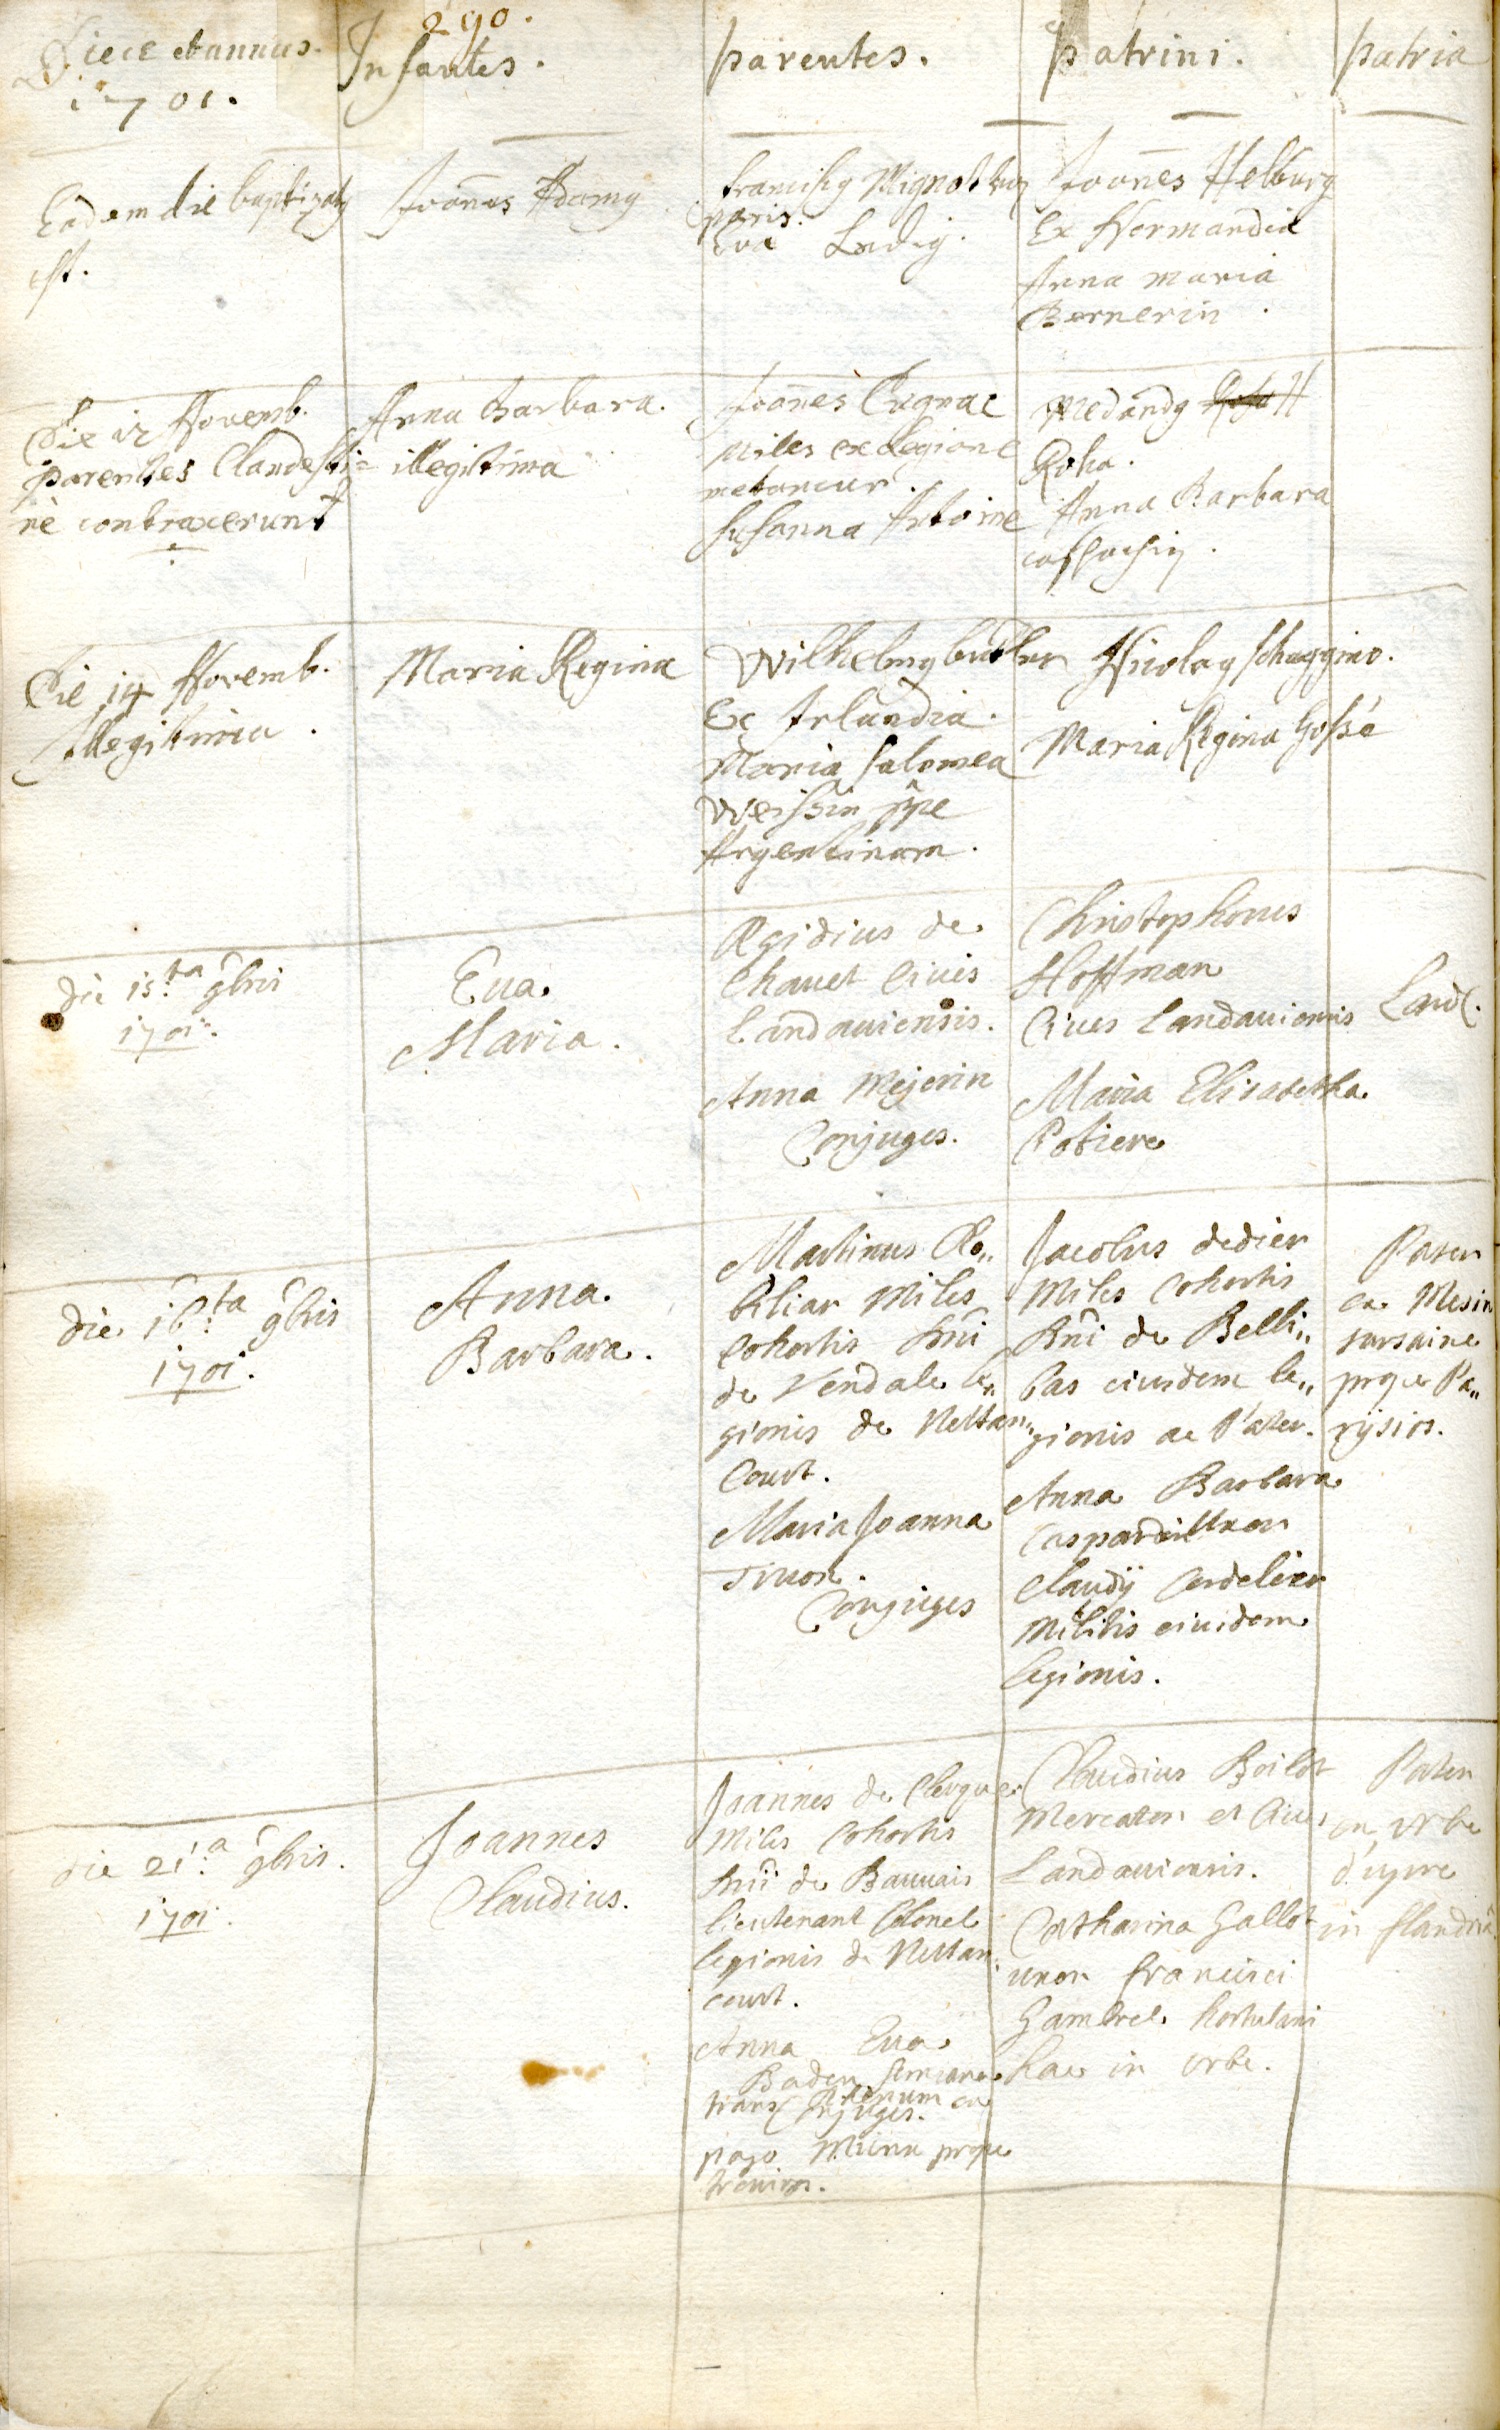 290.
Dies et annus.
1701.
Infantes.
parentes.
patrini.
patria
Eadem die baptizaty
est.
Joannes Adamy
francisсy Mignot ex
paris.
Eva Ludig.
Joannes Helburg
Ex Normandia
Anna Maria
Bernerin.
Die 12 Novemb.
parentes Clandesti=
nè contraxerunt
Anna Barbara.
illegitima
Joannes Cugnac
Miles ex Legione
netancur.
Susanna Antoine
Medardy
Roha.
Anna Barbara
Die 14 Novemb.
Illegitima.
Maria Regina
Wilhelmy butler
Ex Irlandia.
Maria Salomea
Weissin ppe
Argentinam.
Nicolay
Maria Regina Gossé
die 15ta 9bris
1701.
Eva
Maria.
Ægidius de
Chauet Civis
Landauiensis.
Anna Mejerin
Conjuges.
Christophorus
Hoffman
Ciues Landauiensis
Maria Elisabetha
Potiere
Land.
die 16ta 9bris
1701.
Anna
Barbara.
Martinus Ro„
biliar Miles
Cohortis Dni
de Vendale le„
gionis de Nettan„
Court.
Maria Joanna
Conjuges
Jacobus dedier
Miles Cohortis
Dni de Belli„
bas eiusdem le„
gionis ac Pater.
Anna Barbara
Caspardin Uxor
Claudij Cordelier
Militis eiusdem
legionis.
Pater
ex Mesin
prope Pa„
rysios.
die 21a 9bris.
1701.
Joannes
Claudius.
Joannes de Clerque
Miles Cohortis
Dni de Bauuais
lieutenant Colonel
legionis de Nettan
court.
Anna Eua
Baden
trans Rhenum ex
Conjuges.
pago prope
Claudius Boilot
Mercator et Ciues
Landauiensis.
Catharina Gallot
uxor francisci
Gambrel hortulani
hac in urbe.
Pater
ex urbe
d'ypre
in flandria